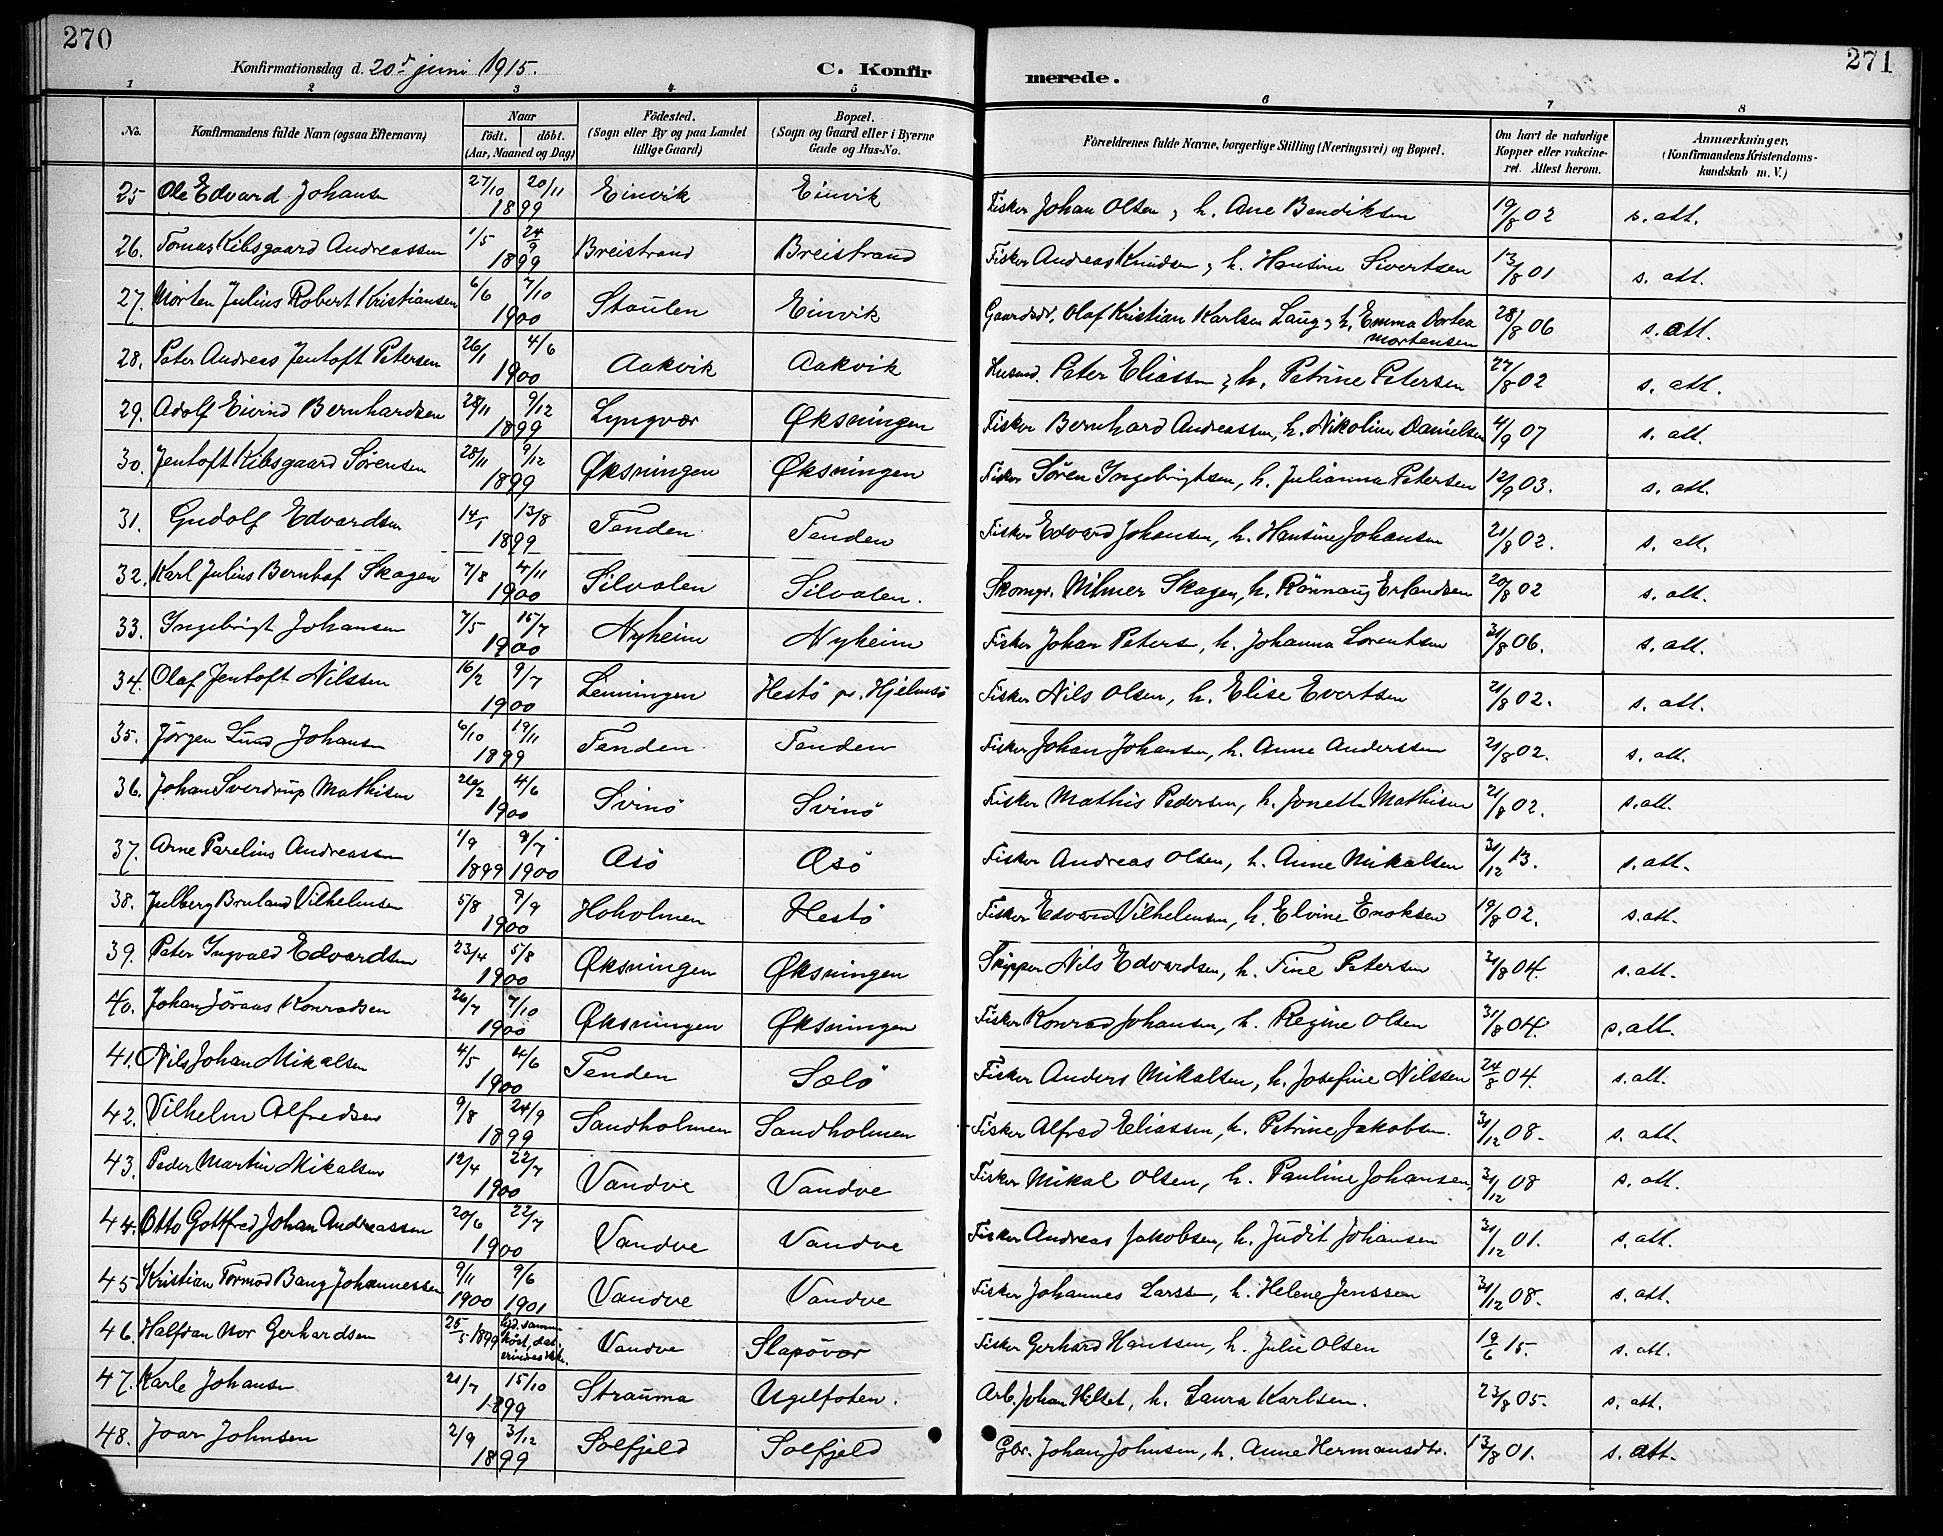 270
Konfirmationsdag d. 20de juni 1915.
C. Konfir
merede.
271
1 2 3 4 5 6 7 8
No.
Konfirmandens fulde Navn (ogsaa Efternavn)
Naar
födt. döbt.
(Aar, Maaned og Dag)
Födested.
(Sogn eller By og paa Landet
tillige Gaard)
Bopæl.
(Sogn og Gaard eller i Byerne
Gade og Hus-No.
Forældrenes fulde Navne, borgerlige Stilling (Næringsvei) og Bopæl.
Om havt de naturlige
Kopper eller vakcine-
ret. Attest herom.
Anmærkninger.
(Konfirmandens Kristendoms-
kundskab m. V.)
25 Ole Edvard Johansn 27/10 20/11 1899 Einvik Einvik Fisker Johan Olsen, h. Ane Bendiksen 19/8 02 s. att.
26. Tomas Kibsgaard Andreassen 1/5 24/9 1899 Breistrand Breistrand Fisker Andreas Knudsen, h. Hansine Sivertsen 13/8 01 s. att.
27. Morten Julius Robert Kristiansen 6/6 7/10 1900 Staulen Einvik Gaardbr. Olaf Kristian Karlsen Laug, h. Emma Dortea Mortensen 28/8 06 s. att.
28. Peter Andreas Jentoft Petersen 26/1 4/6 1900 Aakvik Aakvik Husmd. Peter Eliassen, h. Petrine Petersen 27/8 02 s. att.
29. Adolf Eivind Bernhardsen 28/11 9/12 1899 Lyngvær Øksningen Fisker Bernhard Andreassen, h. Nikoline Danielsen 4/9 07 s. att.
30. Jentoft Kibsgaard Sørensen 28/11 9/12 1899 Øksningen Øksningen Fisker Sören Ingebrigtsen, h. Julianna Petersen 12/9 03. s. att.
31. Gudolf Edvardsen 14/5 13/8 1899 Tenden Tenden Fisker Edvard Johansen, h. Hansine Johansen 21/8 02. s. att.
32. Karl Julius Bernhof Skagen 7/8 4/11 1900 Silvalen Silvalen. Skomgr. Wilmer Skagen, h. Rönnaug Erlandsen 20/8 02 s. att.
33. Ingebrigt Johansen 7/5 15/7 1900 Nyheim Nyheim Fisker Johan Peters, h. Johanna Lorentsen 31/8 06. s. att.
34. Olaf Jentoft Nilssen 16/2 9/7 1900 Lenningen Hestö pr. Hjelmsö Fisker Nils Olsen, h. Elise Evertsen 21/8 02. s. att.
35. Jörgen Lund Johansen 6/10 19/11 1899 Tenden Tenden Fisker Johan Johansen, h. Anne Anderssen 21/8 02. s. att.
36. Johan Sverdrup Mathisen 26/2 4/6 1900 Svinö Svinö Fisker Mathis Pedersen, h. Jonette Mathisen 21/8 02. s. att.
37. Arne Parelius Andreassen 1/9 1899 9/7 1900 Asö Asö Fisker Andreas Olsen, h. Anne Mikalsen 31/12 13. s. att.
38. Julberg Bruland Vilhelmsen 5/8 9/9 1900 Hoholmen Hestö Fisker Edvard Vilhelmsen, h. Elvine Enoksen 19/8 02. s. att.
39. Peter Ingvald Edvardsen 23/4 5/8 1900 Øksningen Øksningen Skipper Nils Edvardsen, h. Tine Petersen 31/8 04. s. att.
40. Johan Jörans Konradsen 26/7 7/10 1900 Øksningen Øksningen Fisker Konrad Johansen, h. Regine Olsen 31/8 04. s. att.
41. Nils Johan Mikalsen 4/5 4/6 1900 Tenden Salö Fisker Anders Mikalsen, h. Josefine Nilssen 24/8 04. s. att.
42. Vilhelm Alfredsen 9/8 24/9 1899 Sandholmen Sandholmen Fisker Alfred Eliassen, h. Petrine Jakobsen. 31/12 08. s. att.
43. Peder Martin Mikalsen 12/4 22/7 1900 Vandve Vandve Fisker Mikal Olsen, h. Pauline Johansen, 31/12 08 s. att.
44. Otto Gottfred Johan Andreassen 20/6 22/7 1900 Vandve Vandve Fisker Andreas Jakobsen, h. Judit Johansen 31/12 01. s. att.
45 Kristian Tormod Bang Johannessen 9/11 1900 9/6 1901 Vandve Vandve Fisker Johannes Larssen, h. Helene Jenssen 31/12 08. s. att.
46. Halfdan Nor Gerhardsen 25/5 1899 Vandve Slapövær Fisker Gerhard Hanssen, h. Julie Olsen 19/6 15. s. att.
47. Karle Johansen 21/7 15/10 1899 Strauma Ugelfoten. Arb. Johan Hilset, h. Laura Karlsen. 23/8 05. s. att.
48. Joar Johnsen 2/9 3/12 1899 Solfjeld Solfjeld Gbr. Johan Johnsen, h. Anne Hermansdtr. 13/8 01. s. att.